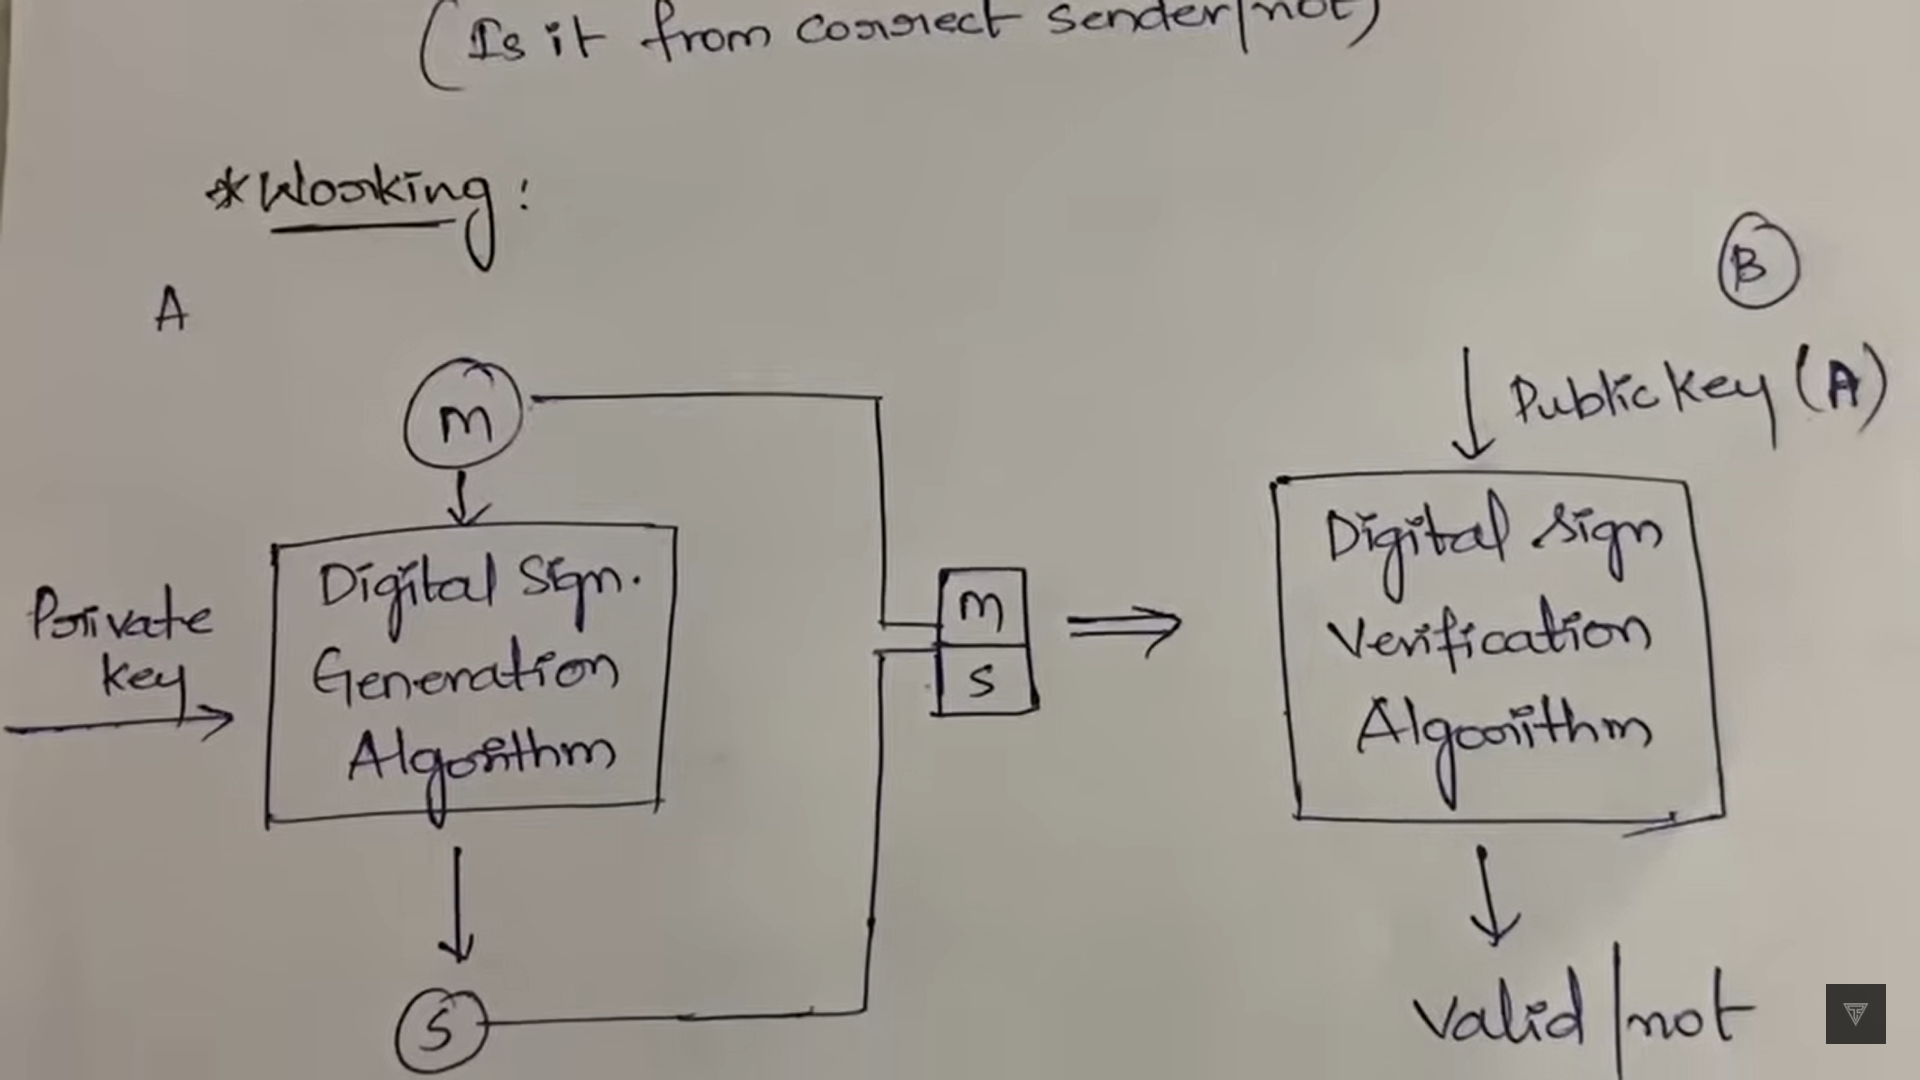 (Is it from correct sender/not)
*Working:
A
B
m
Public key (A)
Private
key
Digital Sign.
Generation
Algorithm
m
S
Digital Sign
Verification
Algorithm
S
Valid/not